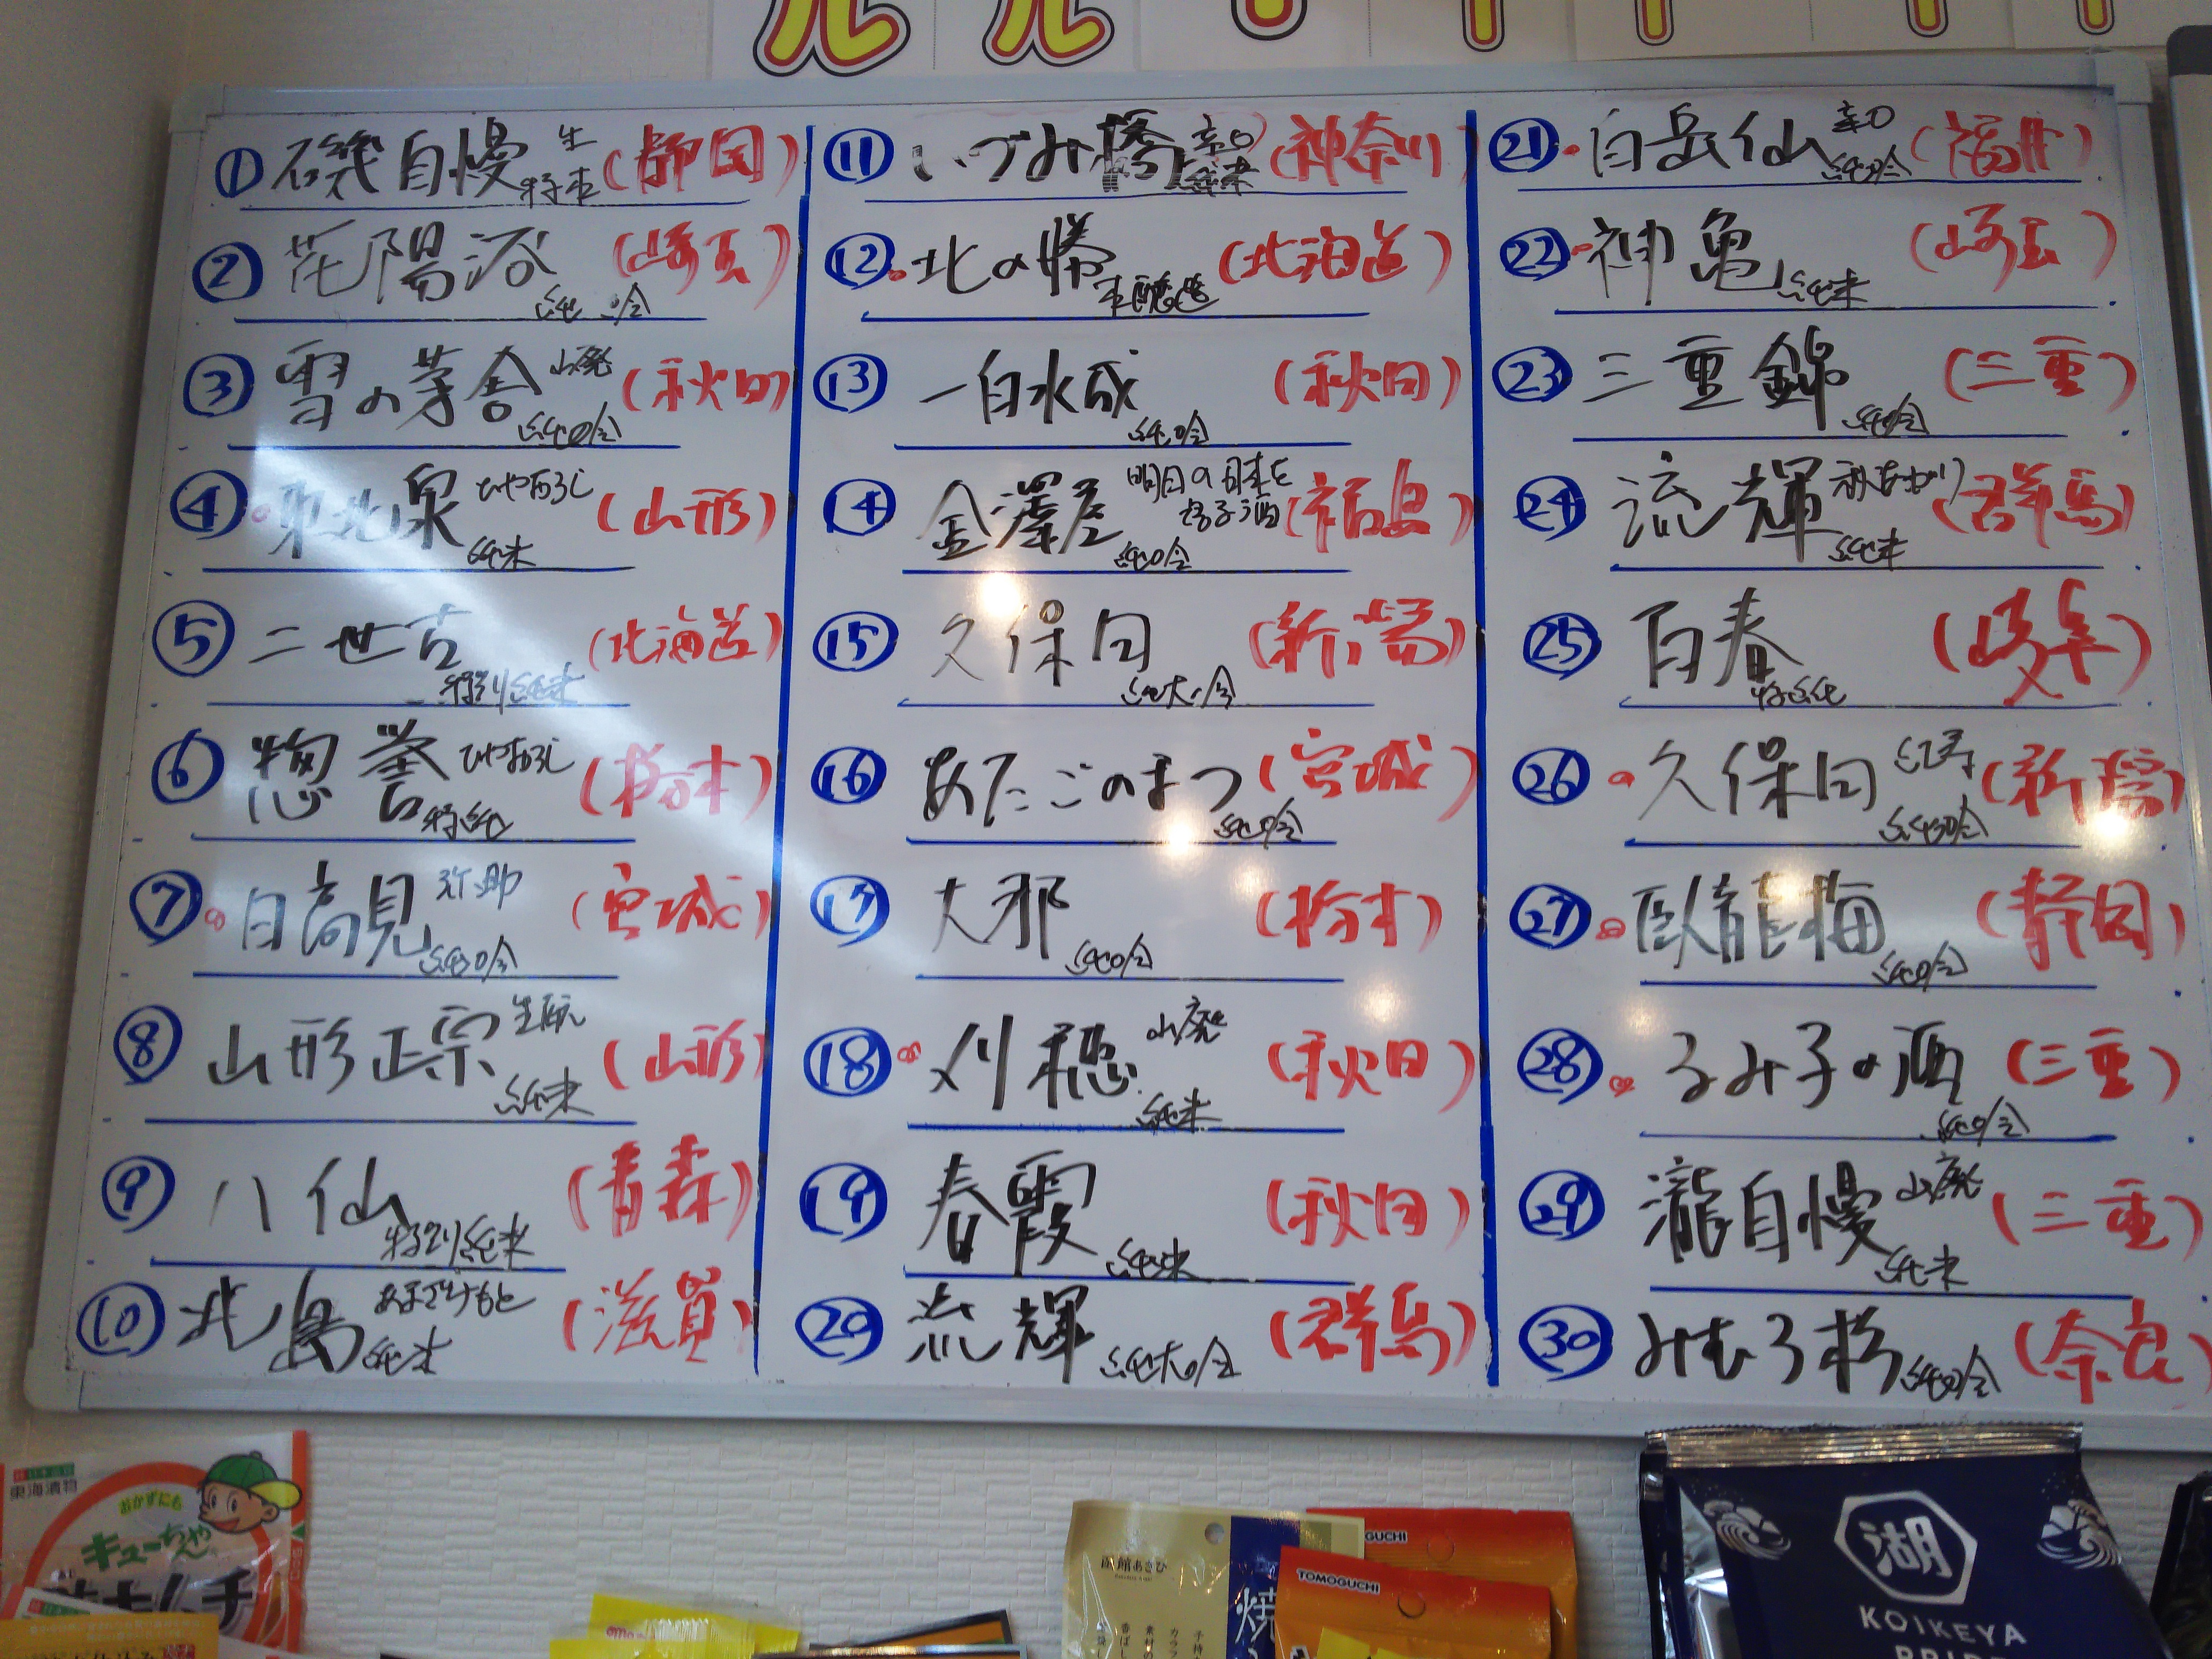 ① 磯自慢 生 特本 (静岡)
② 花陽浴 純吟 (崎玉)
③ 雪の茅舎 山廃 純吟 (秋田)
④ 東北泉 ひやおろし 純米 (山形)
⑤ 二世古 特別純米 (北海道)
⑥ 惣誉 ひやおろし 特純 (栃木)
⑦ 日高見 弥助 純吟 (宮城)
⑧ 山形正宗 生酛 純米 (山形)
⑨ 八仙 特別純米 (青森)
⑩ 北島 あまざけもと 純米 (滋賀)
⑪ いづみ橋 辛口 純米 (神奈川)
⑫ 北の勝 本醸造 (北海道)
⑬ 一白水成 純吟 (秋田)
⑭ 金澤屋 明日の日本を 純吟 (福島)
⑮ 久保田 純大吟 (新潟)
⑯ あたごのまつ 純吟 (宮城)
⑰ 大那 純吟 (栃木)
⑱ 刈穂 山廃 純米 (秋田)
⑲ 春霞 純米 (秋田)
⑳ 流輝 純大吟 (群馬)
㉑ 白岳仙 辛口 純吟 (福井)
㉒ 神亀 純米 (崎玉)
㉓ 三重錦 純吟 (三重)
㉔ 流輝 秋あがり 純米 (群馬)
㉕ 百春 特純 (岐阜)
㉖ 久保田 紅寿 純吟 (新潟)
㉗ 臥龍梅 純吟 (静岡)
㉘ るみ子の酒 純吟 (三重)
㉙ 瀧自慢 山廃 純米 (三重)
㉚ みむろ杉 純吟 (奈良)
東海漬物
おかずにも
キューちゃん
キムチ
函館あさひ
焼
GUCHI
TOMOGUCHI
湖
KOIKEYA